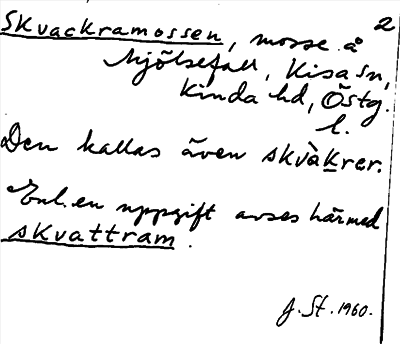 2
Skvackramossen, mosse å
Mjölsefall, Kisa sn,
Kinda hd, Östg.
l.
Den kallas även skvàkrer.
Enl. en uppgift avses härmed
skvattram.
J. St. 1960.